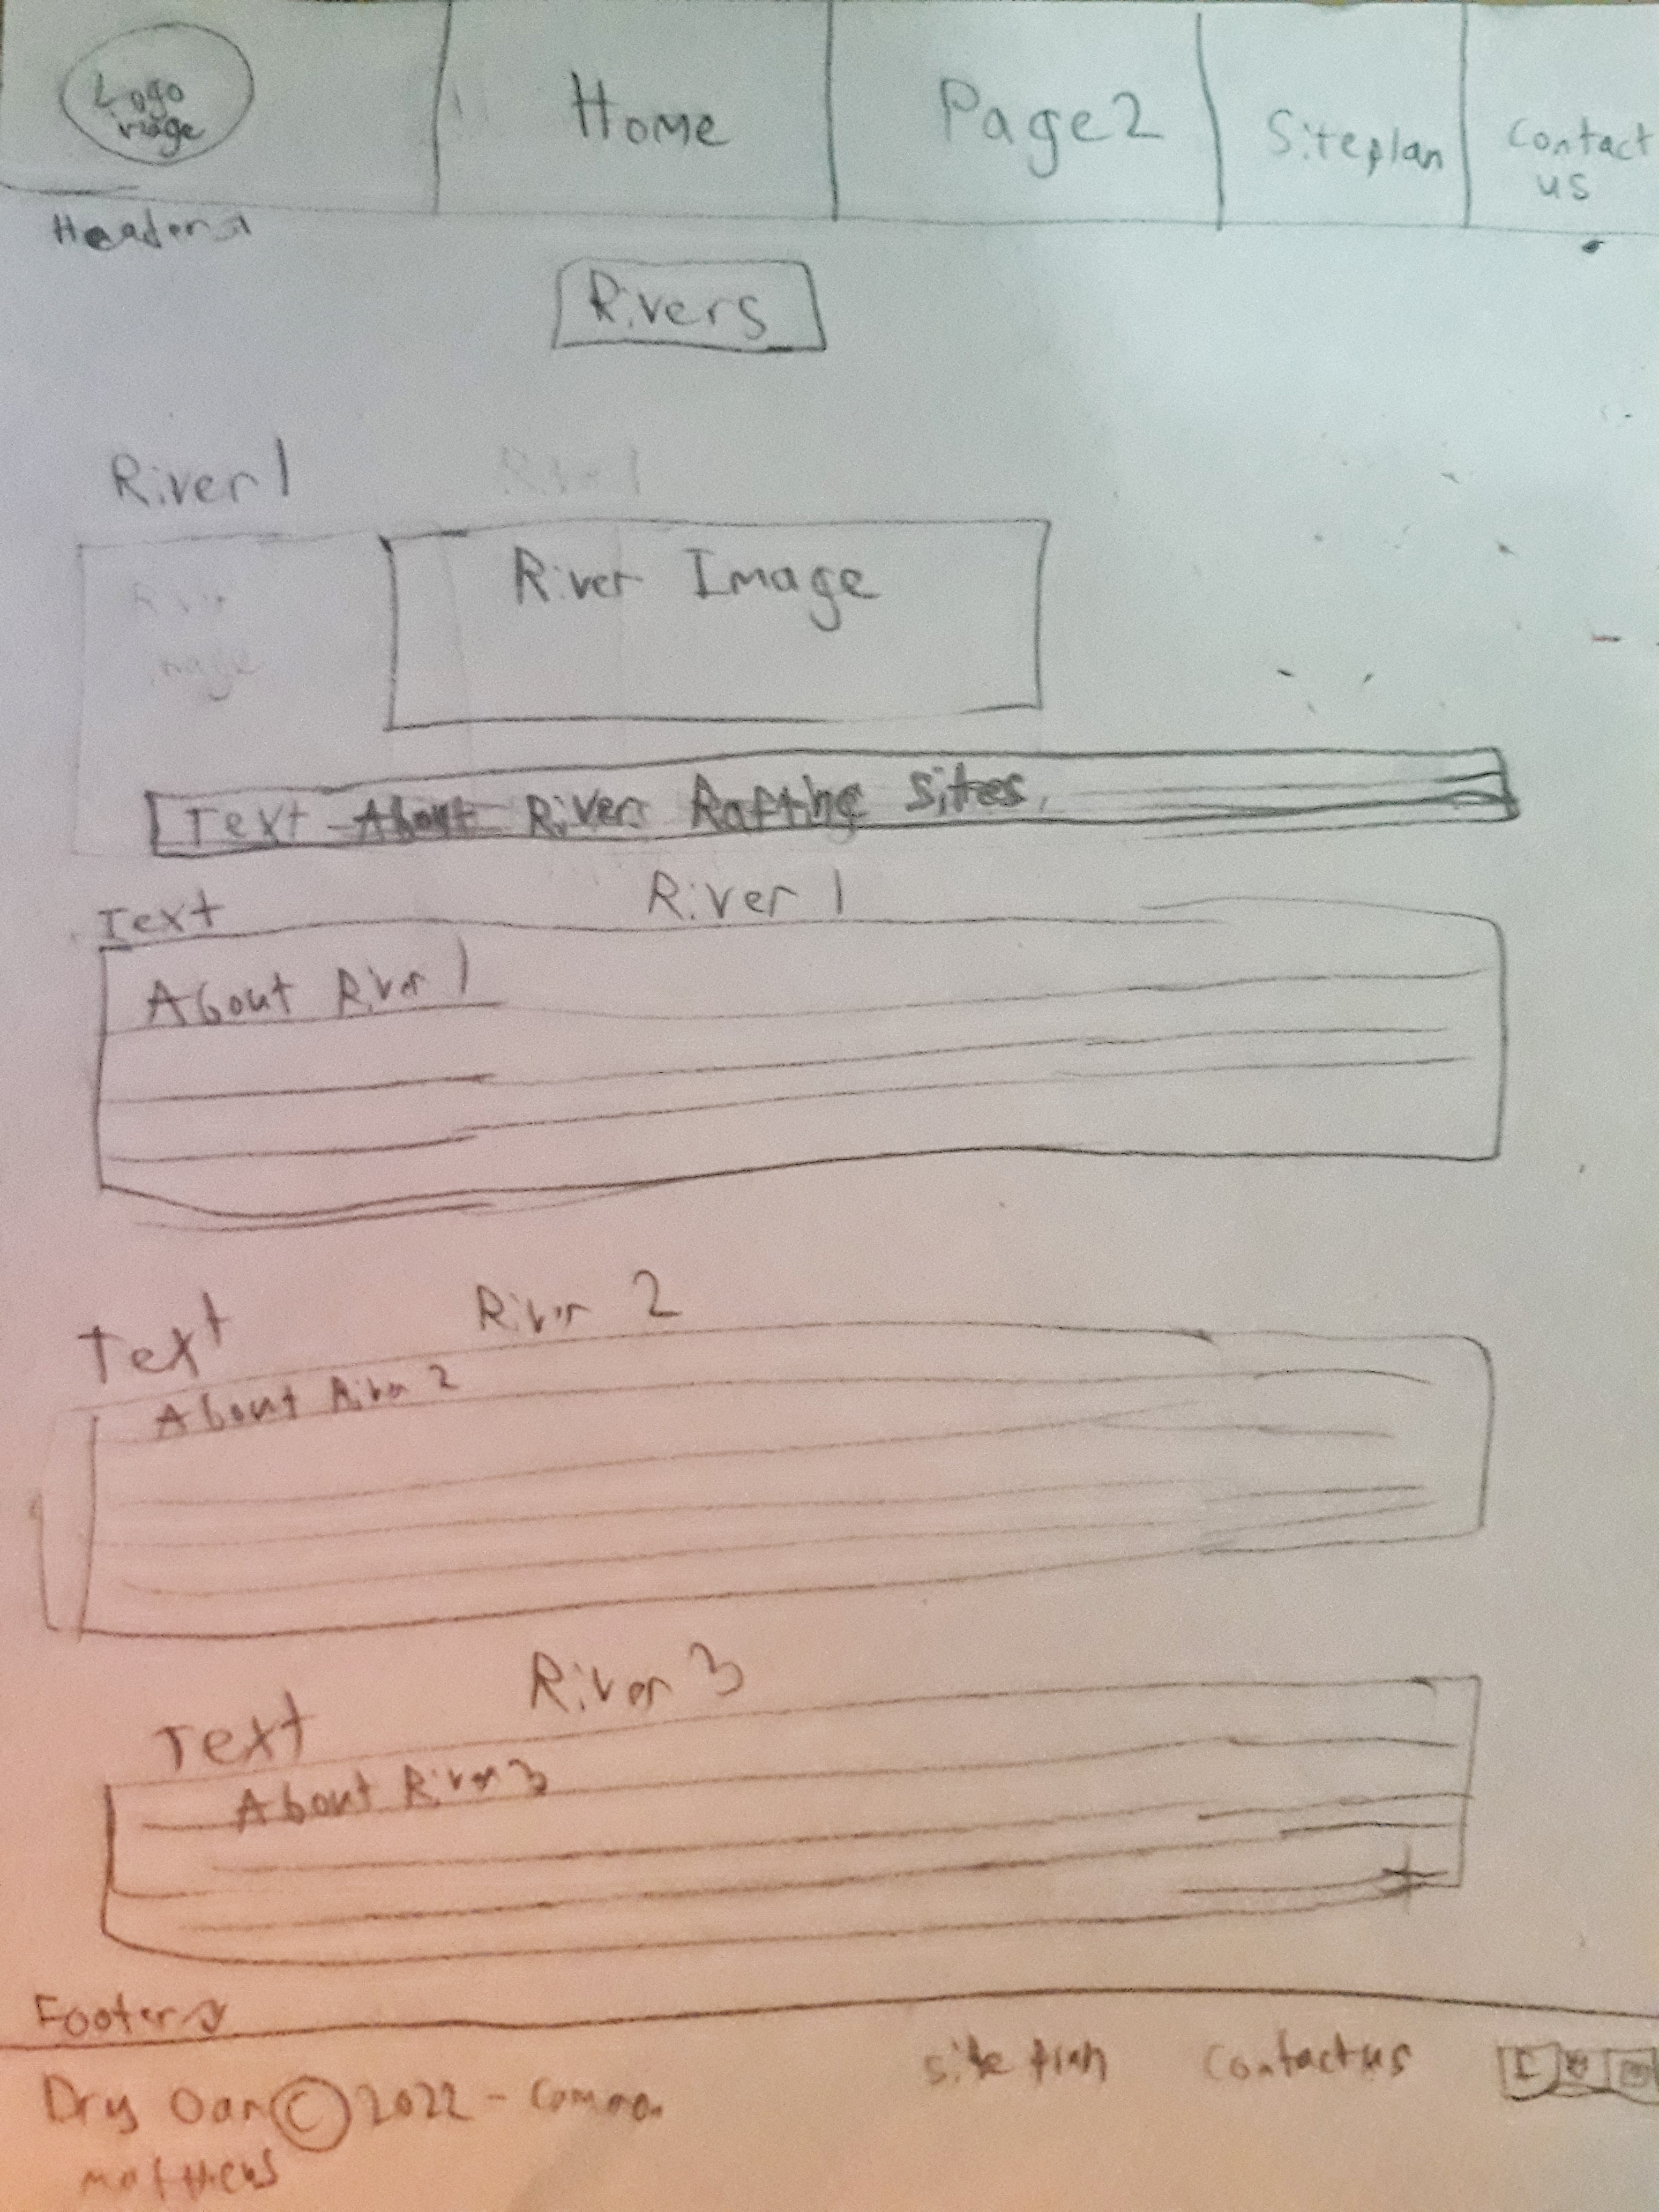 Logo
image
Home
Page2
Siteplan
Contact
us
Header
Rivers
River 1
River Image
Text About River Rafting Sites.
Text
River 1
About River 1
Text
River 2
About River 2
Text
River 3
About River 3
Footer
Dry Oar © 2022 -
site plan
Contact us